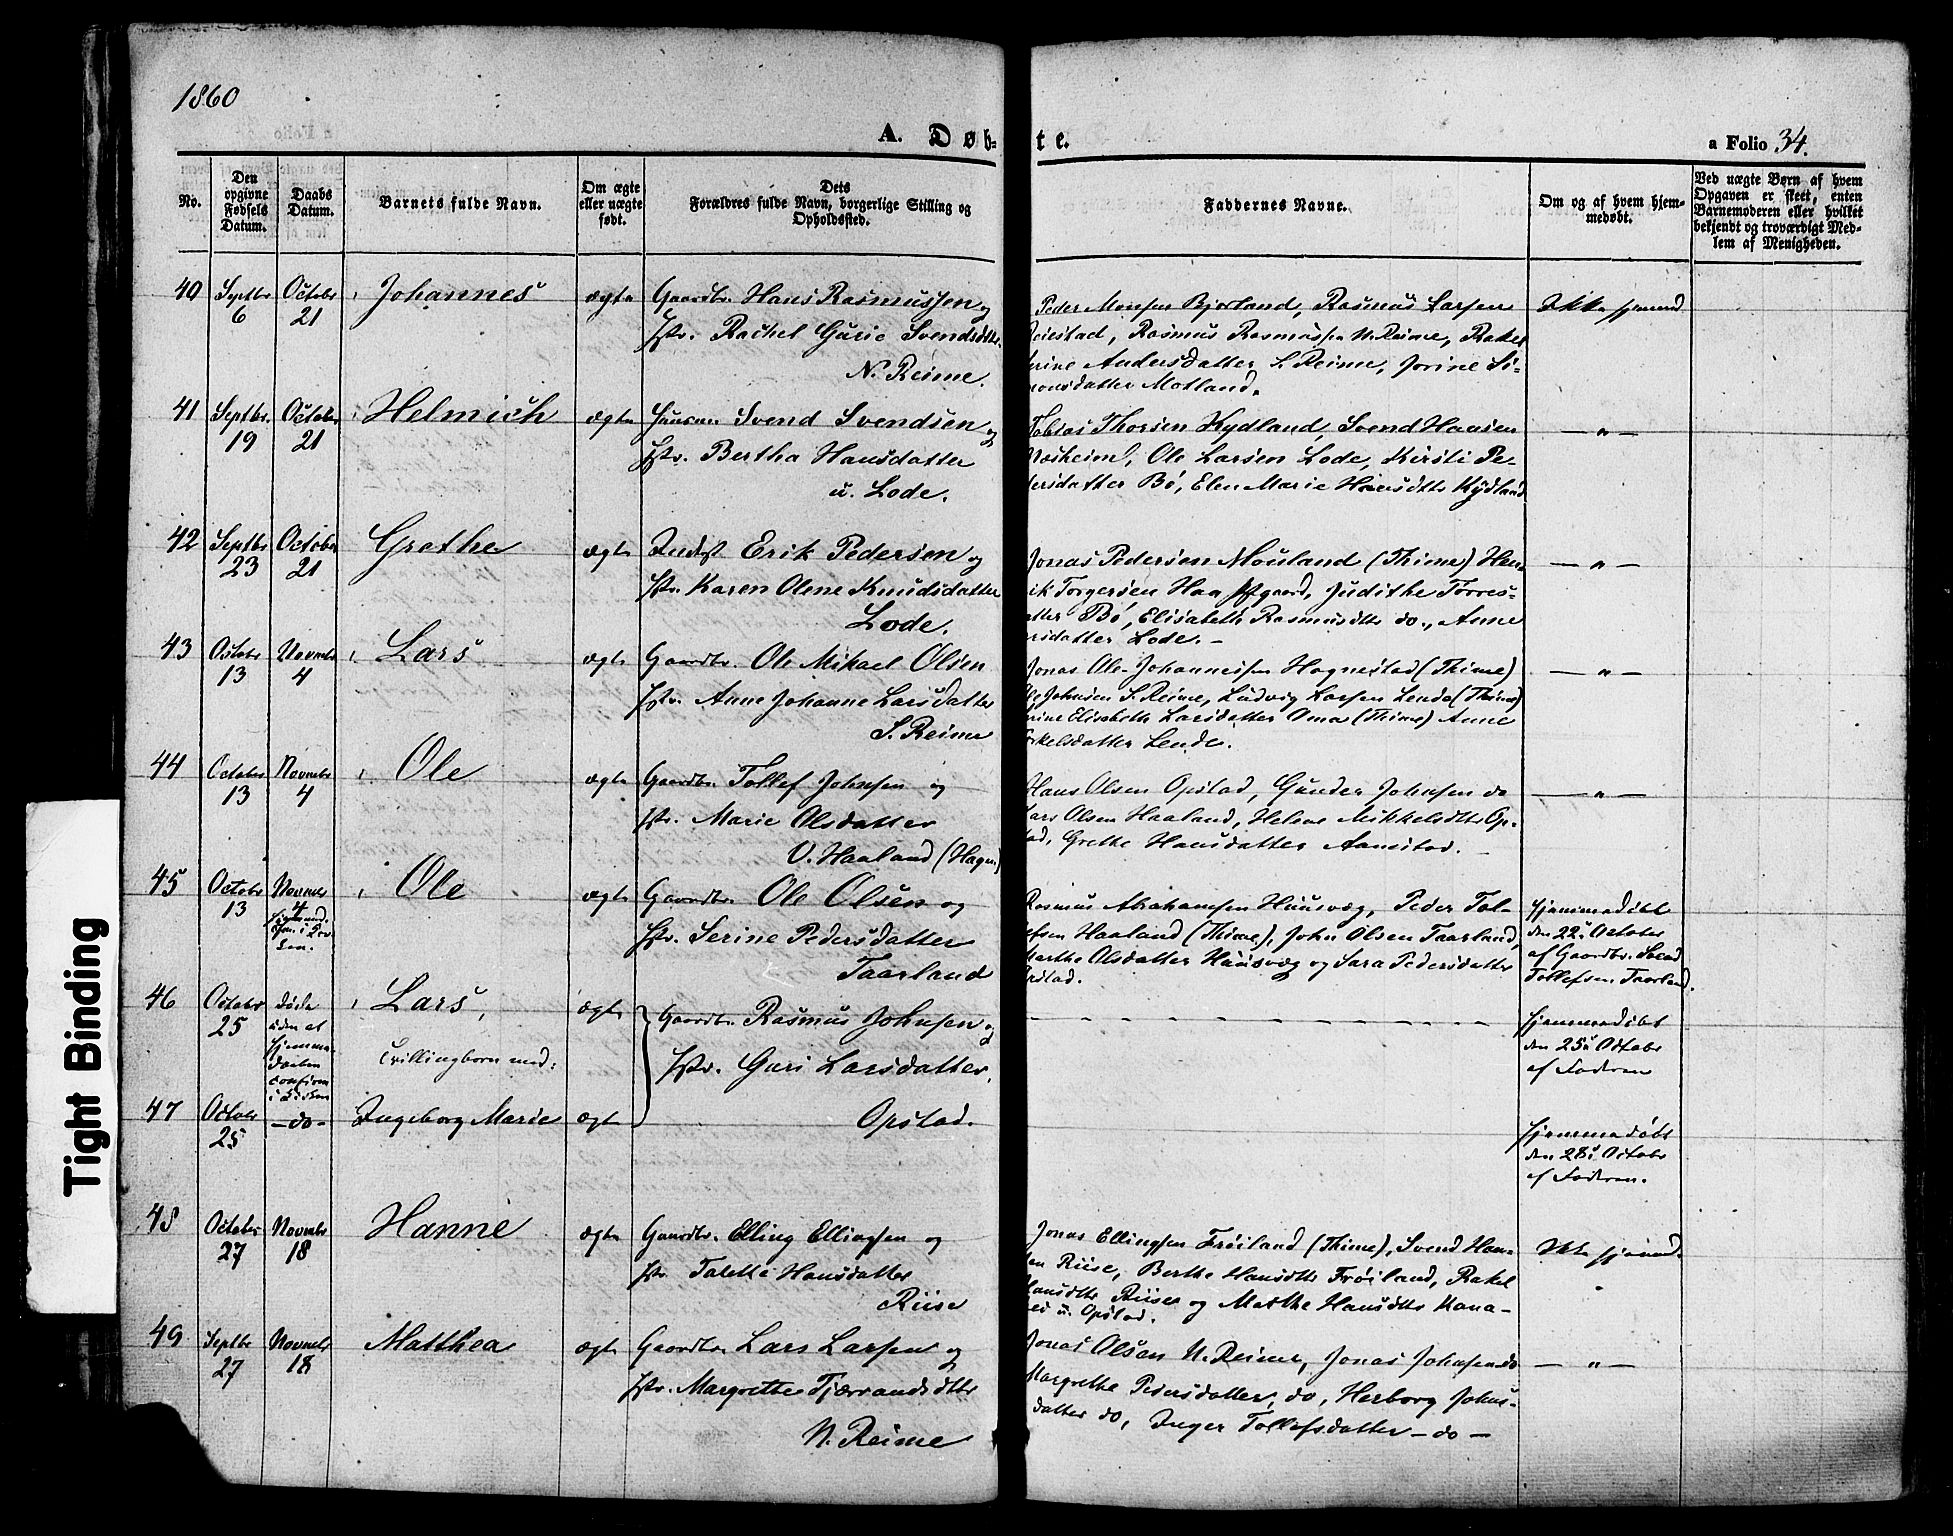 1860
A. Døb-
te.
a Folio 34.
No.
Den
opgivne
Fødsels
Datum.
Daabs
Datum.
Barnets fulde Navn.
Om ægte
eller uægte
født.
Dets
Forældres fulde Navn, borgerlige Stilling og
Opholdssted.
Faddernes Navne.
Om og af hvem hjem-
medøbt.
Ved uægte Børn af hvem
Opgaven er skeet, enten
Barnemoderen eller hvilket
bekjendt og troværdigt Med-
lem af Menigheden.
40 Septbr 6 October 21 Johannes ægte Gaardbr. Hans Rasmussen og
Hstr. Rachel Gurie Svendsdttr.
N. Reime.
Peder Monsen Bjorland, Rasmus Larsen
Rasmus Rasmussen N. Reime, Rakel
Andersdatter S. Reime, Jorine Si-
monsdatter Motland.
Ikke hjemmed
41 Septbr. 19 October 21 Helmich ægte Huusm. Svend Svendsen og
Hstr. Bertha Hansdatter
u. Lode.
Tobias Thorsen Kydland, Svend Hansen
Næsheim, Ole Larsen Lode, Kirsti Pe-
dersdatter Bø, Elen Marie Hansdttr Kydland
— " —
42 Septbr 23 October 21 Grethe ægte Inderst Erik Pedersen og
Hstr. Karen Olene Knudsdatter
Lode.
Jonas Pedersen Mouland (Thime) Hen-
rik Torgersen Haa Pstgaard, Judithe Torres-
datter Bø, Elisabeth Rasmusdttr do., Anne
datter Lode. -
— " —
43 October 13 Novmbr 4 Lars ægte Gaardbr. Ole Mikael Olsen
Hstr. Anne Johanne Larsdatter
S. Reime
Jonas Ole Johannessen Hognestad (Thime)
Ole Johnsen S. Reime, Ludvig Larsen Lende (Thime)
Elisabeth Larsdatter Oma (Thime) Anne
datter Lende.
— " —
44 October 13 Novmbr 4 Ole ægte Gaardbr. Tollef Johnsen og
Hstr. Marie Olsdatter
O. Haaland (Hagen)
Hans Olsen Opstad, Gunder Johnsen do
Lars Olsen Haaland, Helene Mikkelsdttr Op-
stad, Grethe Hansdatter Aanestad.
— " —
45 October 13 Novmbr 4 Ole ægte Gaardbr. Ole Olsen og
Hstr. Serine Pedersdatter
Taarland
Rasmus Abrahamsen Huusvæg, Peder Tol-
lefsen Haaland (Thime), John Olsen Taarland,
Marthe Olsdatter Huusvæg og Sara Pedersdatter
Opstad.
Hjemmedøbt
den 22. October
af Gaardbr. Svend
Tollefsen Taarland.
46 October 25 døde
uden at
hjemme-
daaben
confirm
i Kirken
Lars,
Tvillingbarn med:
ægte Gaardbr. Rasmus Johnsen og
Hstr. Guri Larsdatter,
Opstad.
Hjemmedøbt
den 25. October
af Faderen
47 October 25 - do - Ingeborg Marie ægte
Hjemmedøbt
den 28. October
af Faderen.
48 October 27 Novmbr 18 Hanne ægte Gaardbr. Elling Ellingsen og
Hstr. Talette Hansdatter
Riise
Jonas Ellingsen Frøiland (Thime), Svend Han-
sen Riise, Berthe Hansdttr Frøiland, Rakel
Hansdttr Riise og Marthe Hansdttr
u. Opstad.
Ikke hjemmed.
49 Septbr 27 Novmbr 18 Matthea ægte Gaardbr. Lars Larsen og
Hstr. Margrethe Tjærandsdttr
N. Reime
Jonas Olsen N. Reime, Jonas Johnsen do
Margrethe Pedersdatter do, Herborg Johns-
datter do, Inger Tollefsdatter - do -
— " —
Tight Binding